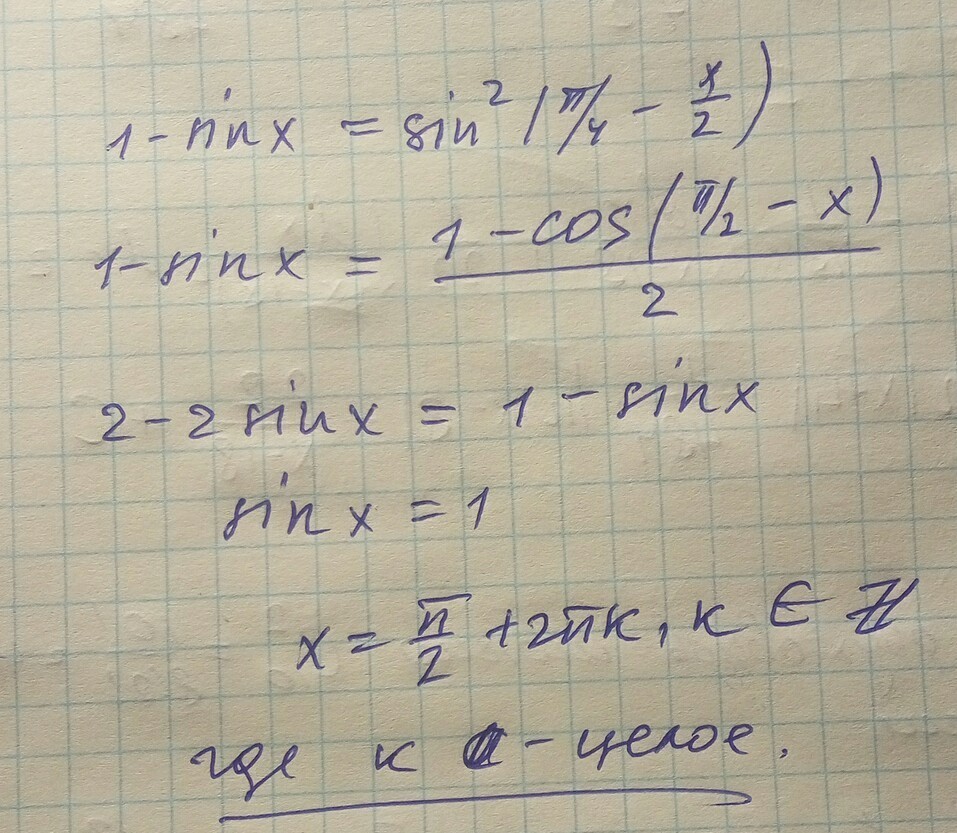 1 - sin x = sin² (π/4 - x/2)
1 - sin x = (1 - cos (π/2 - x))/2
2 - 2 sin x = 1 - sin x
sin x = 1
x = π/2 + 2πk, k ∈ ℤ
где к - целое.